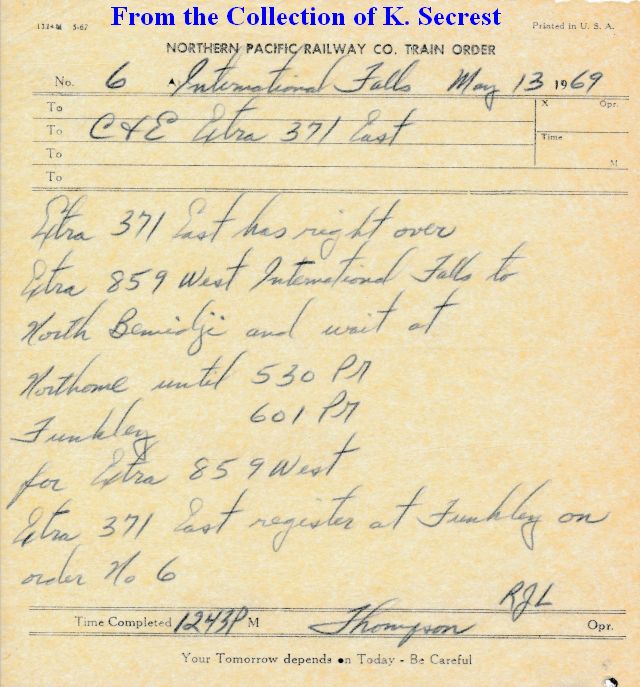 From the Collection of K. Secrest
1324M 5-67 Printed in U. S. A.
NORTHERN PACIFIC RAILWAY CO. TRAIN ORDER
No. 6 International Falls May 13 1969
To X Opr.
To C&E Extra 371 East
Time
To M
To
Extra 371 East has right over
Extra 859 West International Falls to
North Bemidji and wait at
Northome until 530 PM
Funkley 601 PM
for Extra 859 West
Extra 371 East register at Funkley on
order No 6
RJL
Time Completed 1243P M Thompson Opr.
Your Tomorrow depends on Today - Be Careful